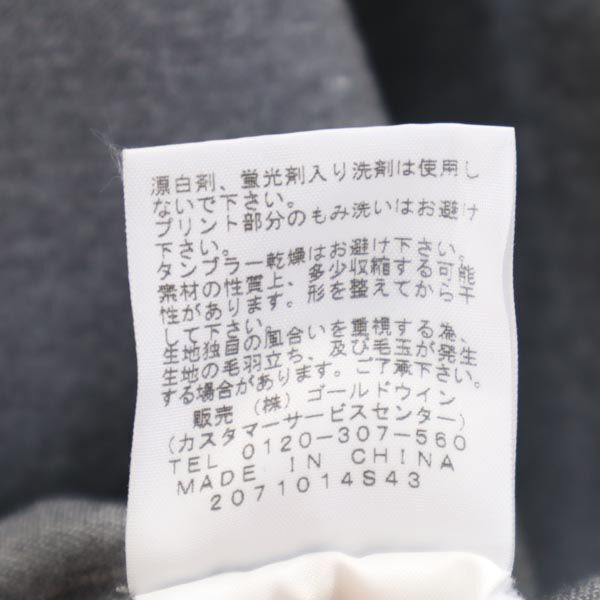 漂白剤、蛍光剤入り洗剤は使用し
ないで下さい。
プリント部分のもみ洗いはお避け
下さい。
タンブラー乾燥はお避け下さい。
素材の性質上、多少収縮する可能
性があります。形を整えてから干
して下さい。
生地独自の風合いを重視する為、
生地の毛羽立ち、及び毛玉が発生
する場合があります。ご了承下さい。
販売 (株) ゴールドウイン
(カスタマーサービスセンター)
TEL 0120-307-560
MADE IN CHINA
2071014S43